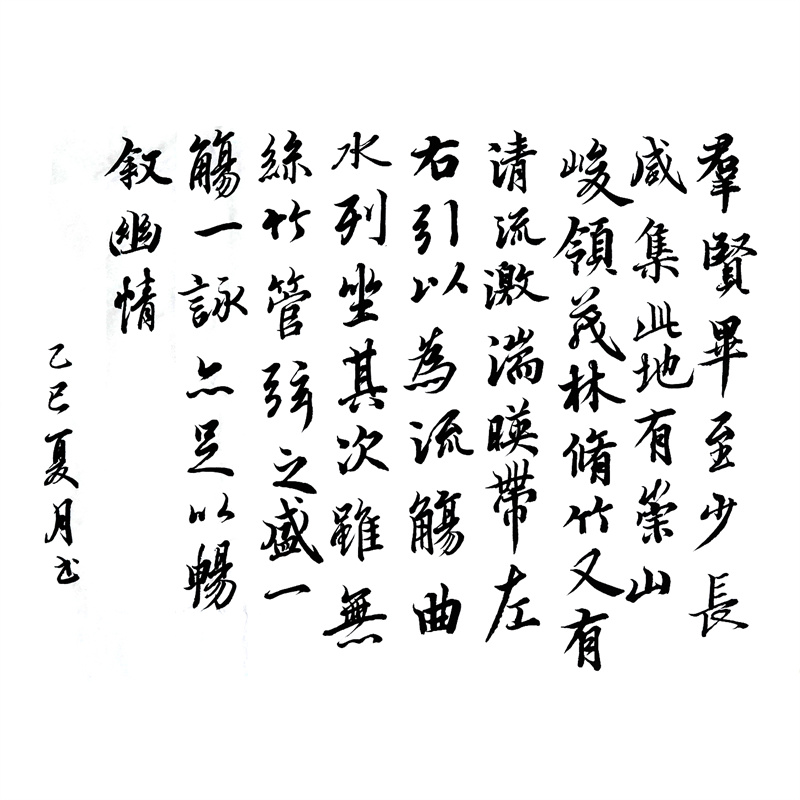 羣賢畢至少長
咸集此地有崇山
峻領茂林脩竹又有
清流激湍暎帶左
右引以為流觴曲
水列坐其次雖無
絲竹管弦之盛一
觴一詠亦足以暢
叙幽情
乙巳夏月书